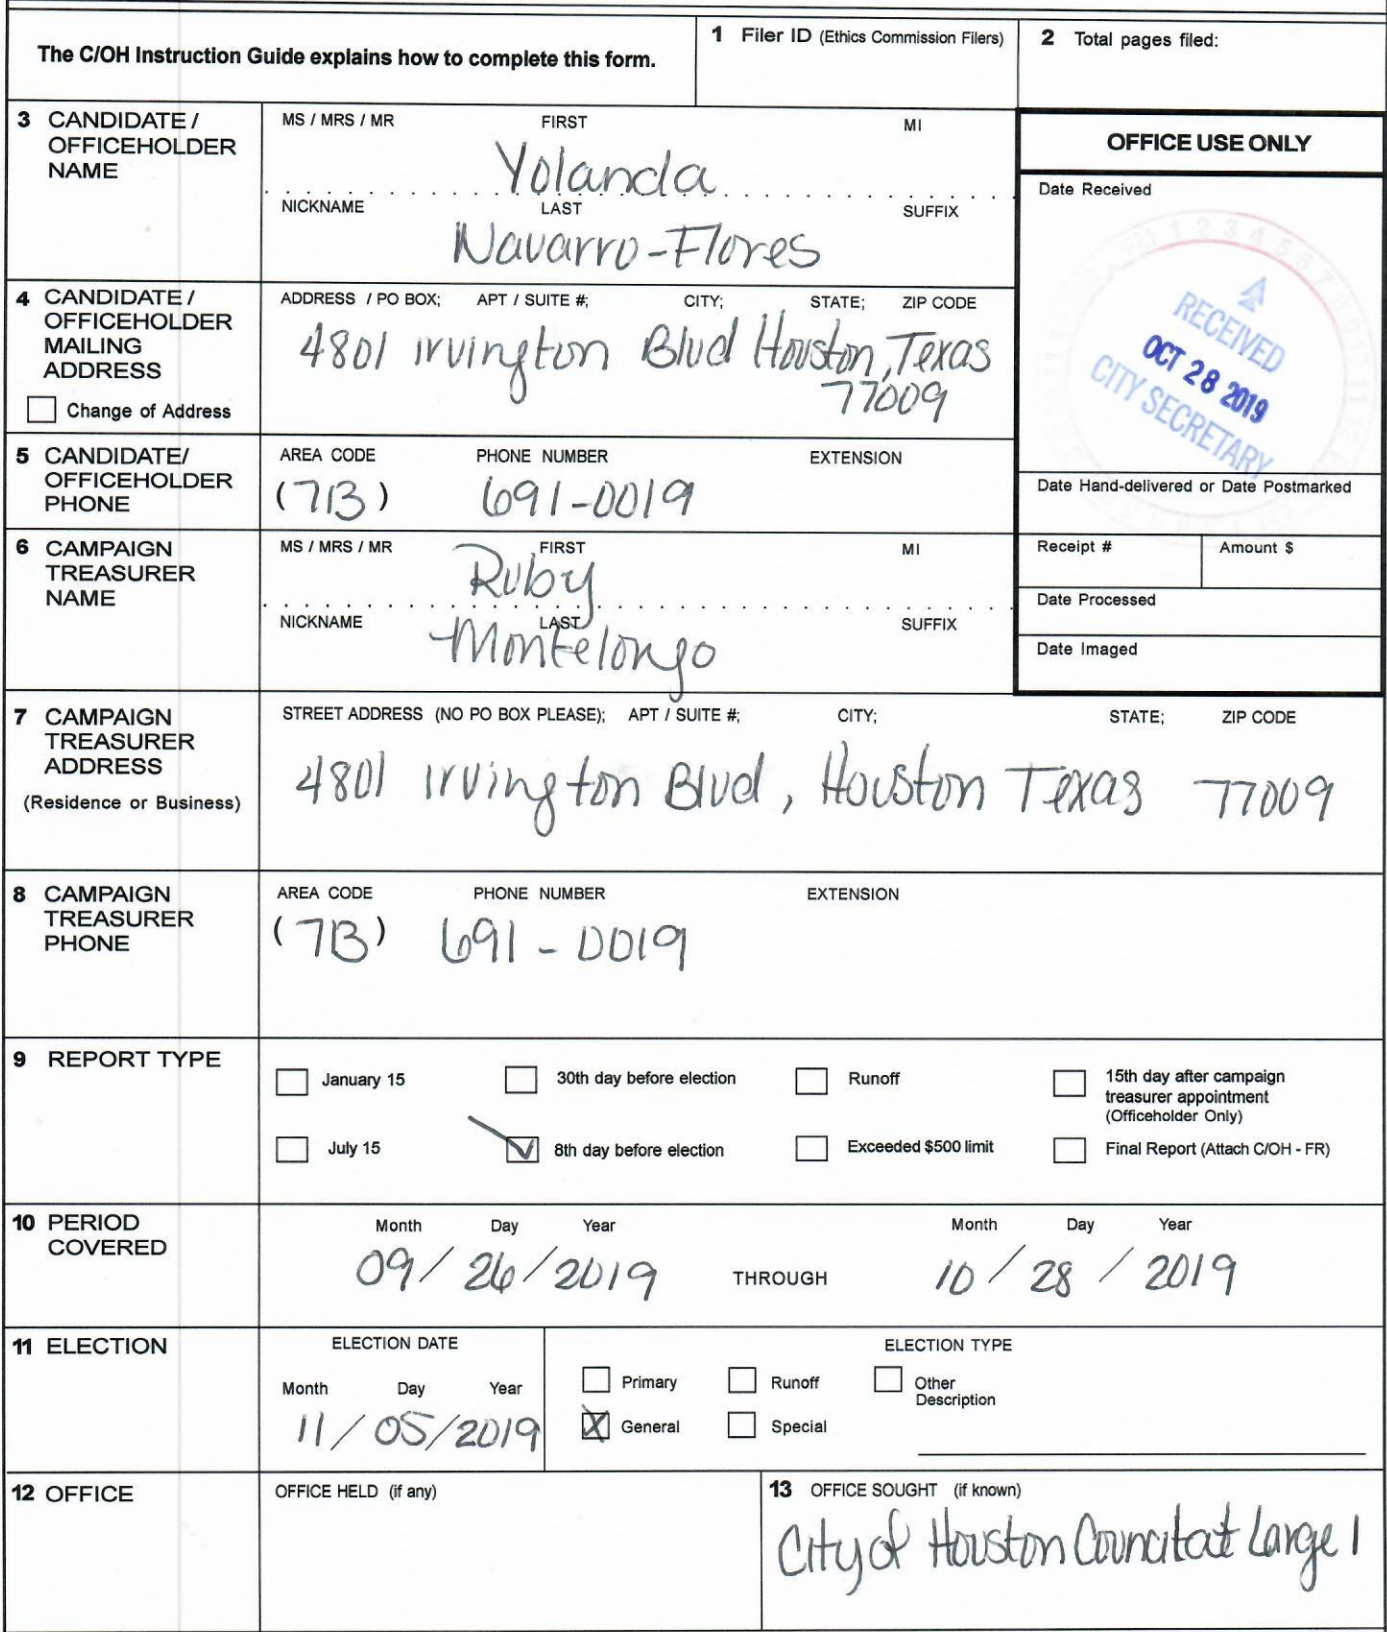 The C/OH Instruction Guide explains how to complete this form.
1 Filer ID (Ethics Commission Filers)
2 Total pages filed:
3 CANDIDATE / OFFICEHOLDER NAME
MS / MRS / MR FIRST MI
Yolanda
NICKNAME LAST SUFFIX
Navarro-Flores
OFFICE USE ONLY
Date Received
RECEIVED
OCT 28 2019
CITY SECRETARY
4 CANDIDATE / OFFICEHOLDER MAILING ADDRESS
Change of Address
ADDRESS / PO BOX; APT / SUITE #; CITY; STATE; ZIP CODE
4801 Irvington Blvd Houston, Texas
77009
5 CANDIDATE/ OFFICEHOLDER PHONE
AREA CODE PHONE NUMBER EXTENSION
(713) 691-0019
Date Hand-delivered or Date Postmarked
6 CAMPAIGN TREASURER NAME
MS / MRS / MR FIRST MI
Ruby
NICKNAME LAST SUFFIX
Montelongo
Receipt # Amount $
Date Processed
Date Imaged
7 CAMPAIGN TREASURER ADDRESS
(Residence or Business)
STREET ADDRESS (NO PO BOX PLEASE); APT / SUITE #; CITY; STATE; ZIP CODE
4801 Irvington Blvd, Houston Texas 77009
8 CAMPAIGN TREASURER PHONE
AREA CODE PHONE NUMBER EXTENSION
(713) 691-0019
9 REPORT TYPE
January 15 30th day before election Runoff 15th day after campaign treasurer appointment (Officeholder Only)
July 15 8th day before election Exceeded $500 limit Final Report (Attach C/OH - FR)
10 PERIOD COVERED
Month Day Year Month Day Year
09/26/2019 THROUGH 10/28/2019
11 ELECTION
ELECTION DATE
Month Day Year
11/05/2019
ELECTION TYPE
Primary Runoff Other Description
General Special
12 OFFICE
OFFICE HELD (if any)
13 OFFICE SOUGHT (if known)
City of Houston Council at Large 1